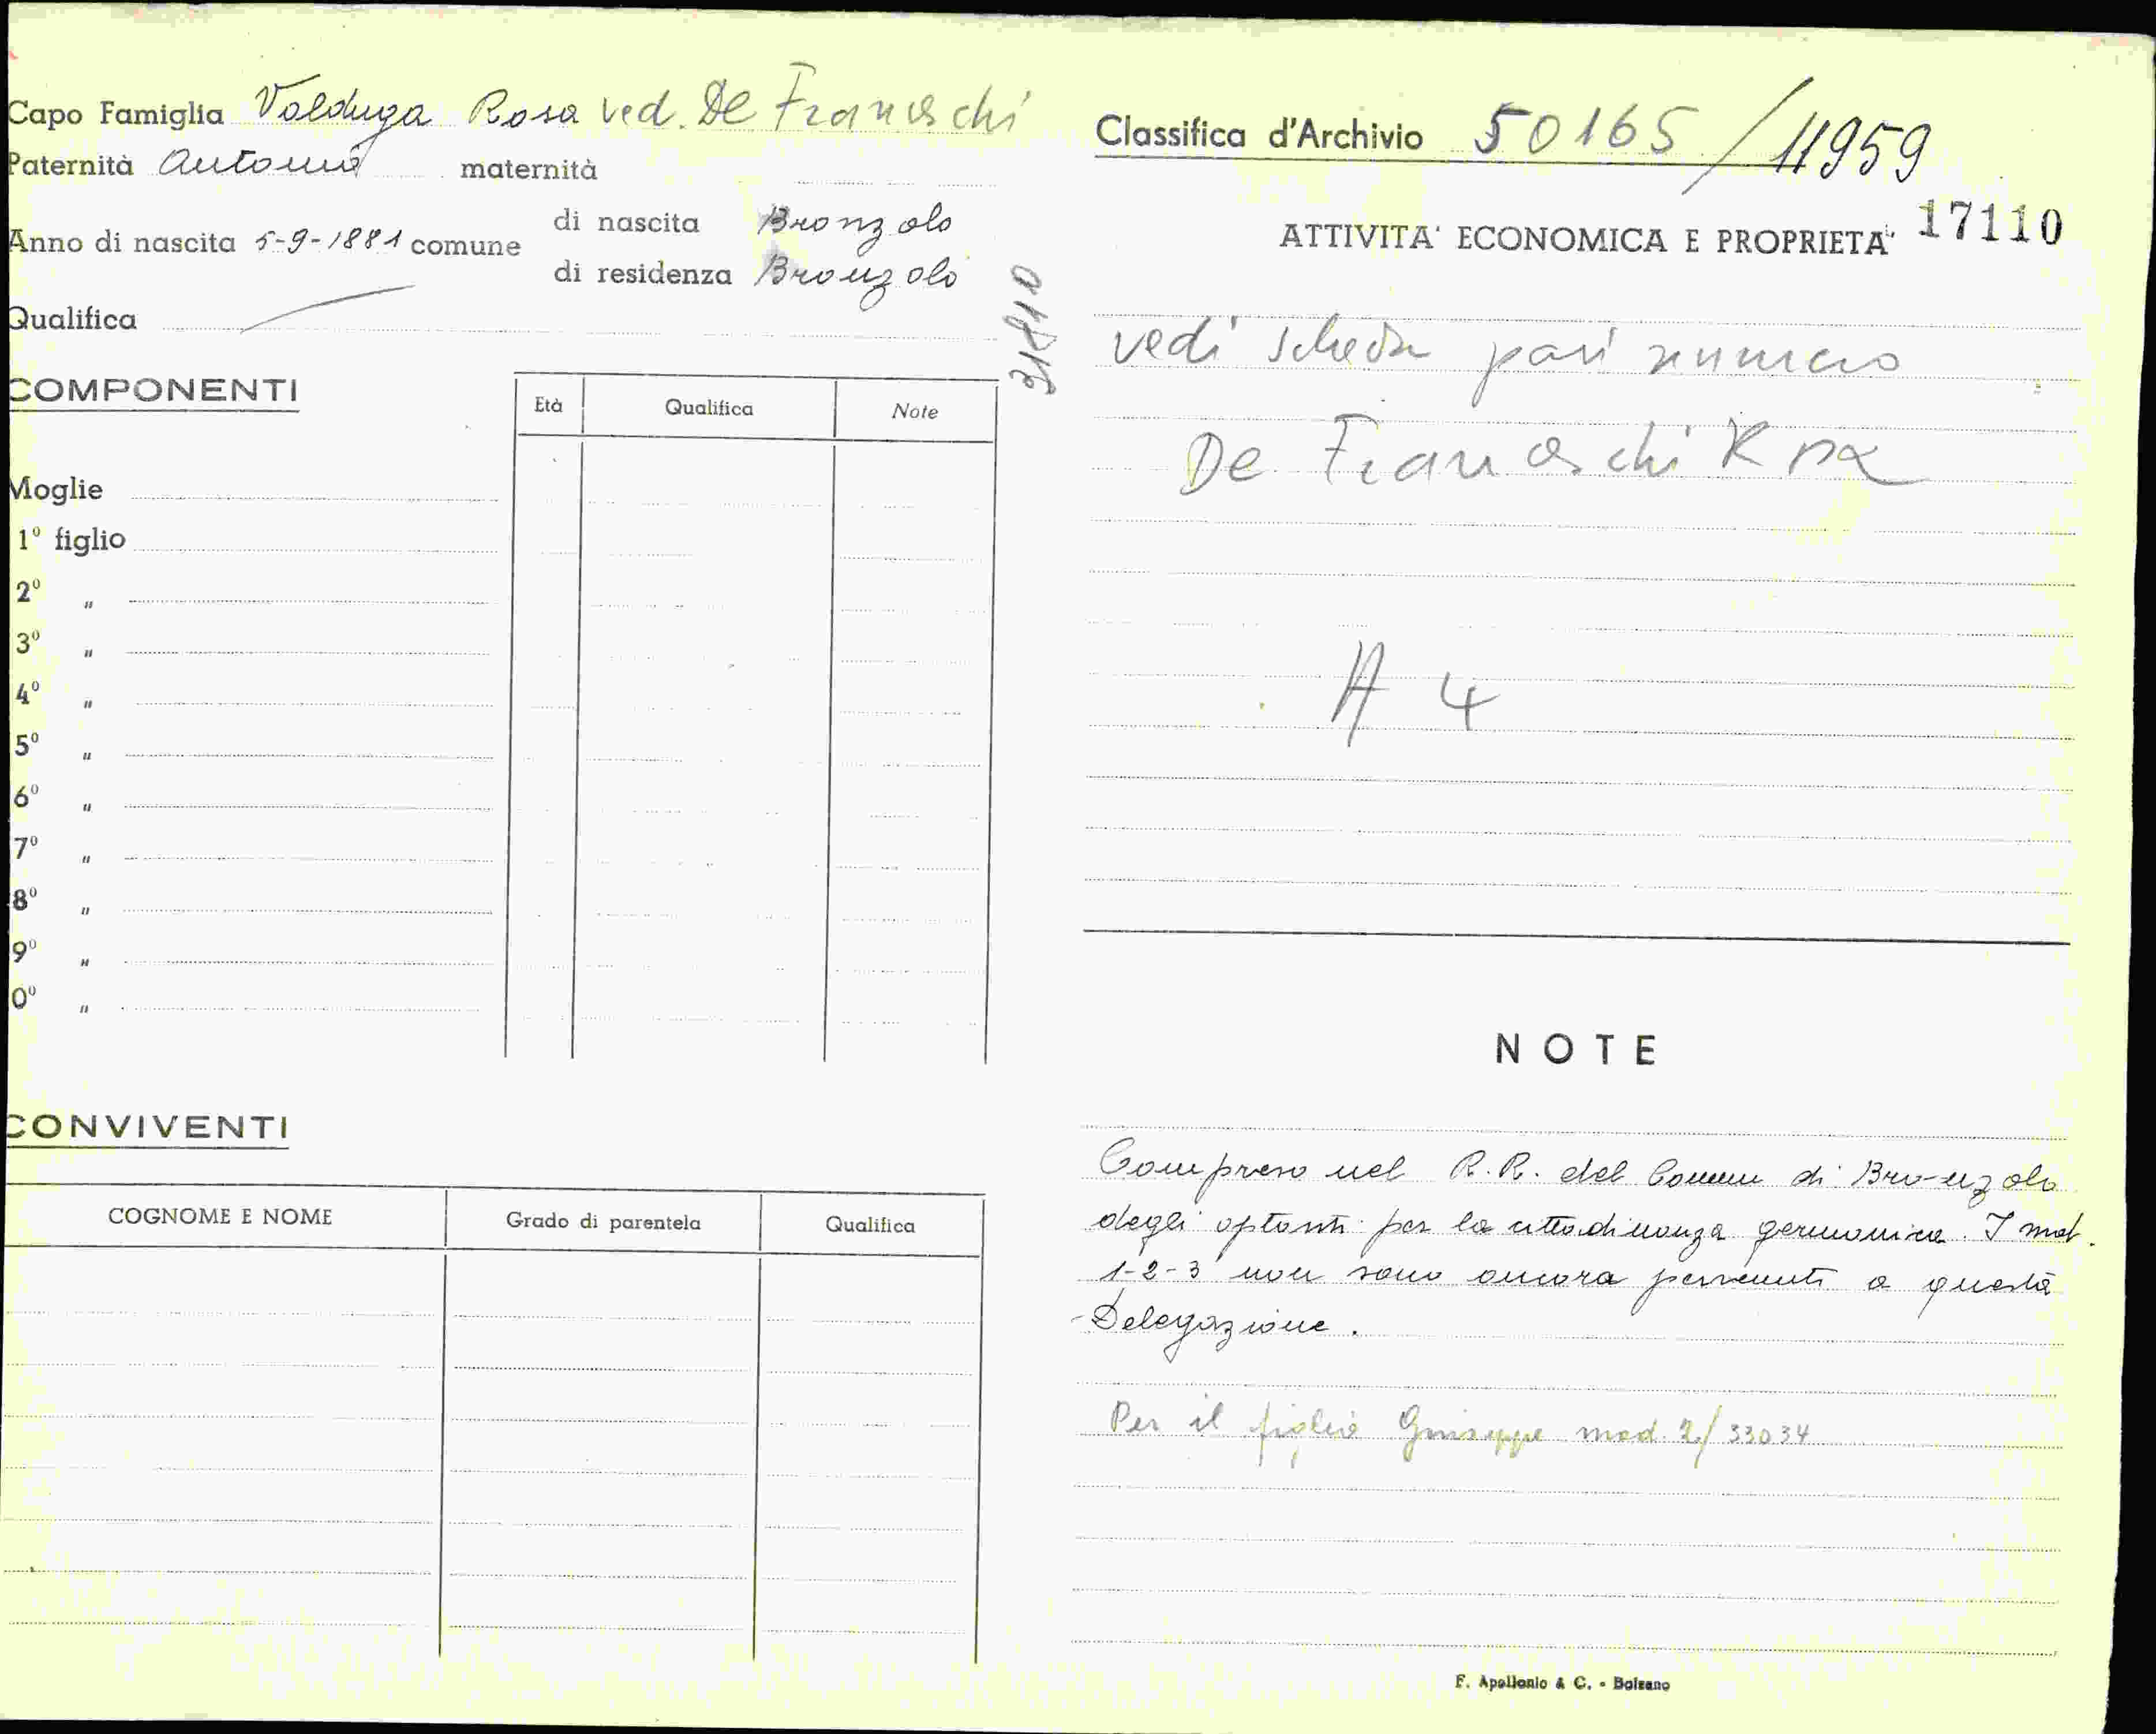 Capo Famiglia Valduga Rosa ved. De Franceschi
Paternità Antonio maternità
Anno di nascita 5-9-1881 comune
di nascita Bronzolo
di residenza Bronzolo
Qualifica
COMPONENTI
Età Qualifica Note
Moglie
1º figlio
2º "
3º "
4º "
5º "
6º "
7º "
8º "
9º "
0º "
CONVIVENTI
COGNOME E NOME Grado di parentela Qualifica
Classifica d'Archivio 50165 / 11959
ATTIVITA' ECONOMICA E PROPRIETA' 17110
vedi scheda pari numero
De Franceschi Rosa
A 4
NOTE
Compreso nel R.R. del Comune di Bronzolo
degli optanti per la cittadinanza germanica. I mod.
1-2-3 non sono ancora pervenuti a questa
Delegazione.
Per il figlio Giuseppe mod. 2/33034
F. Apollonio & C. - Bolzano